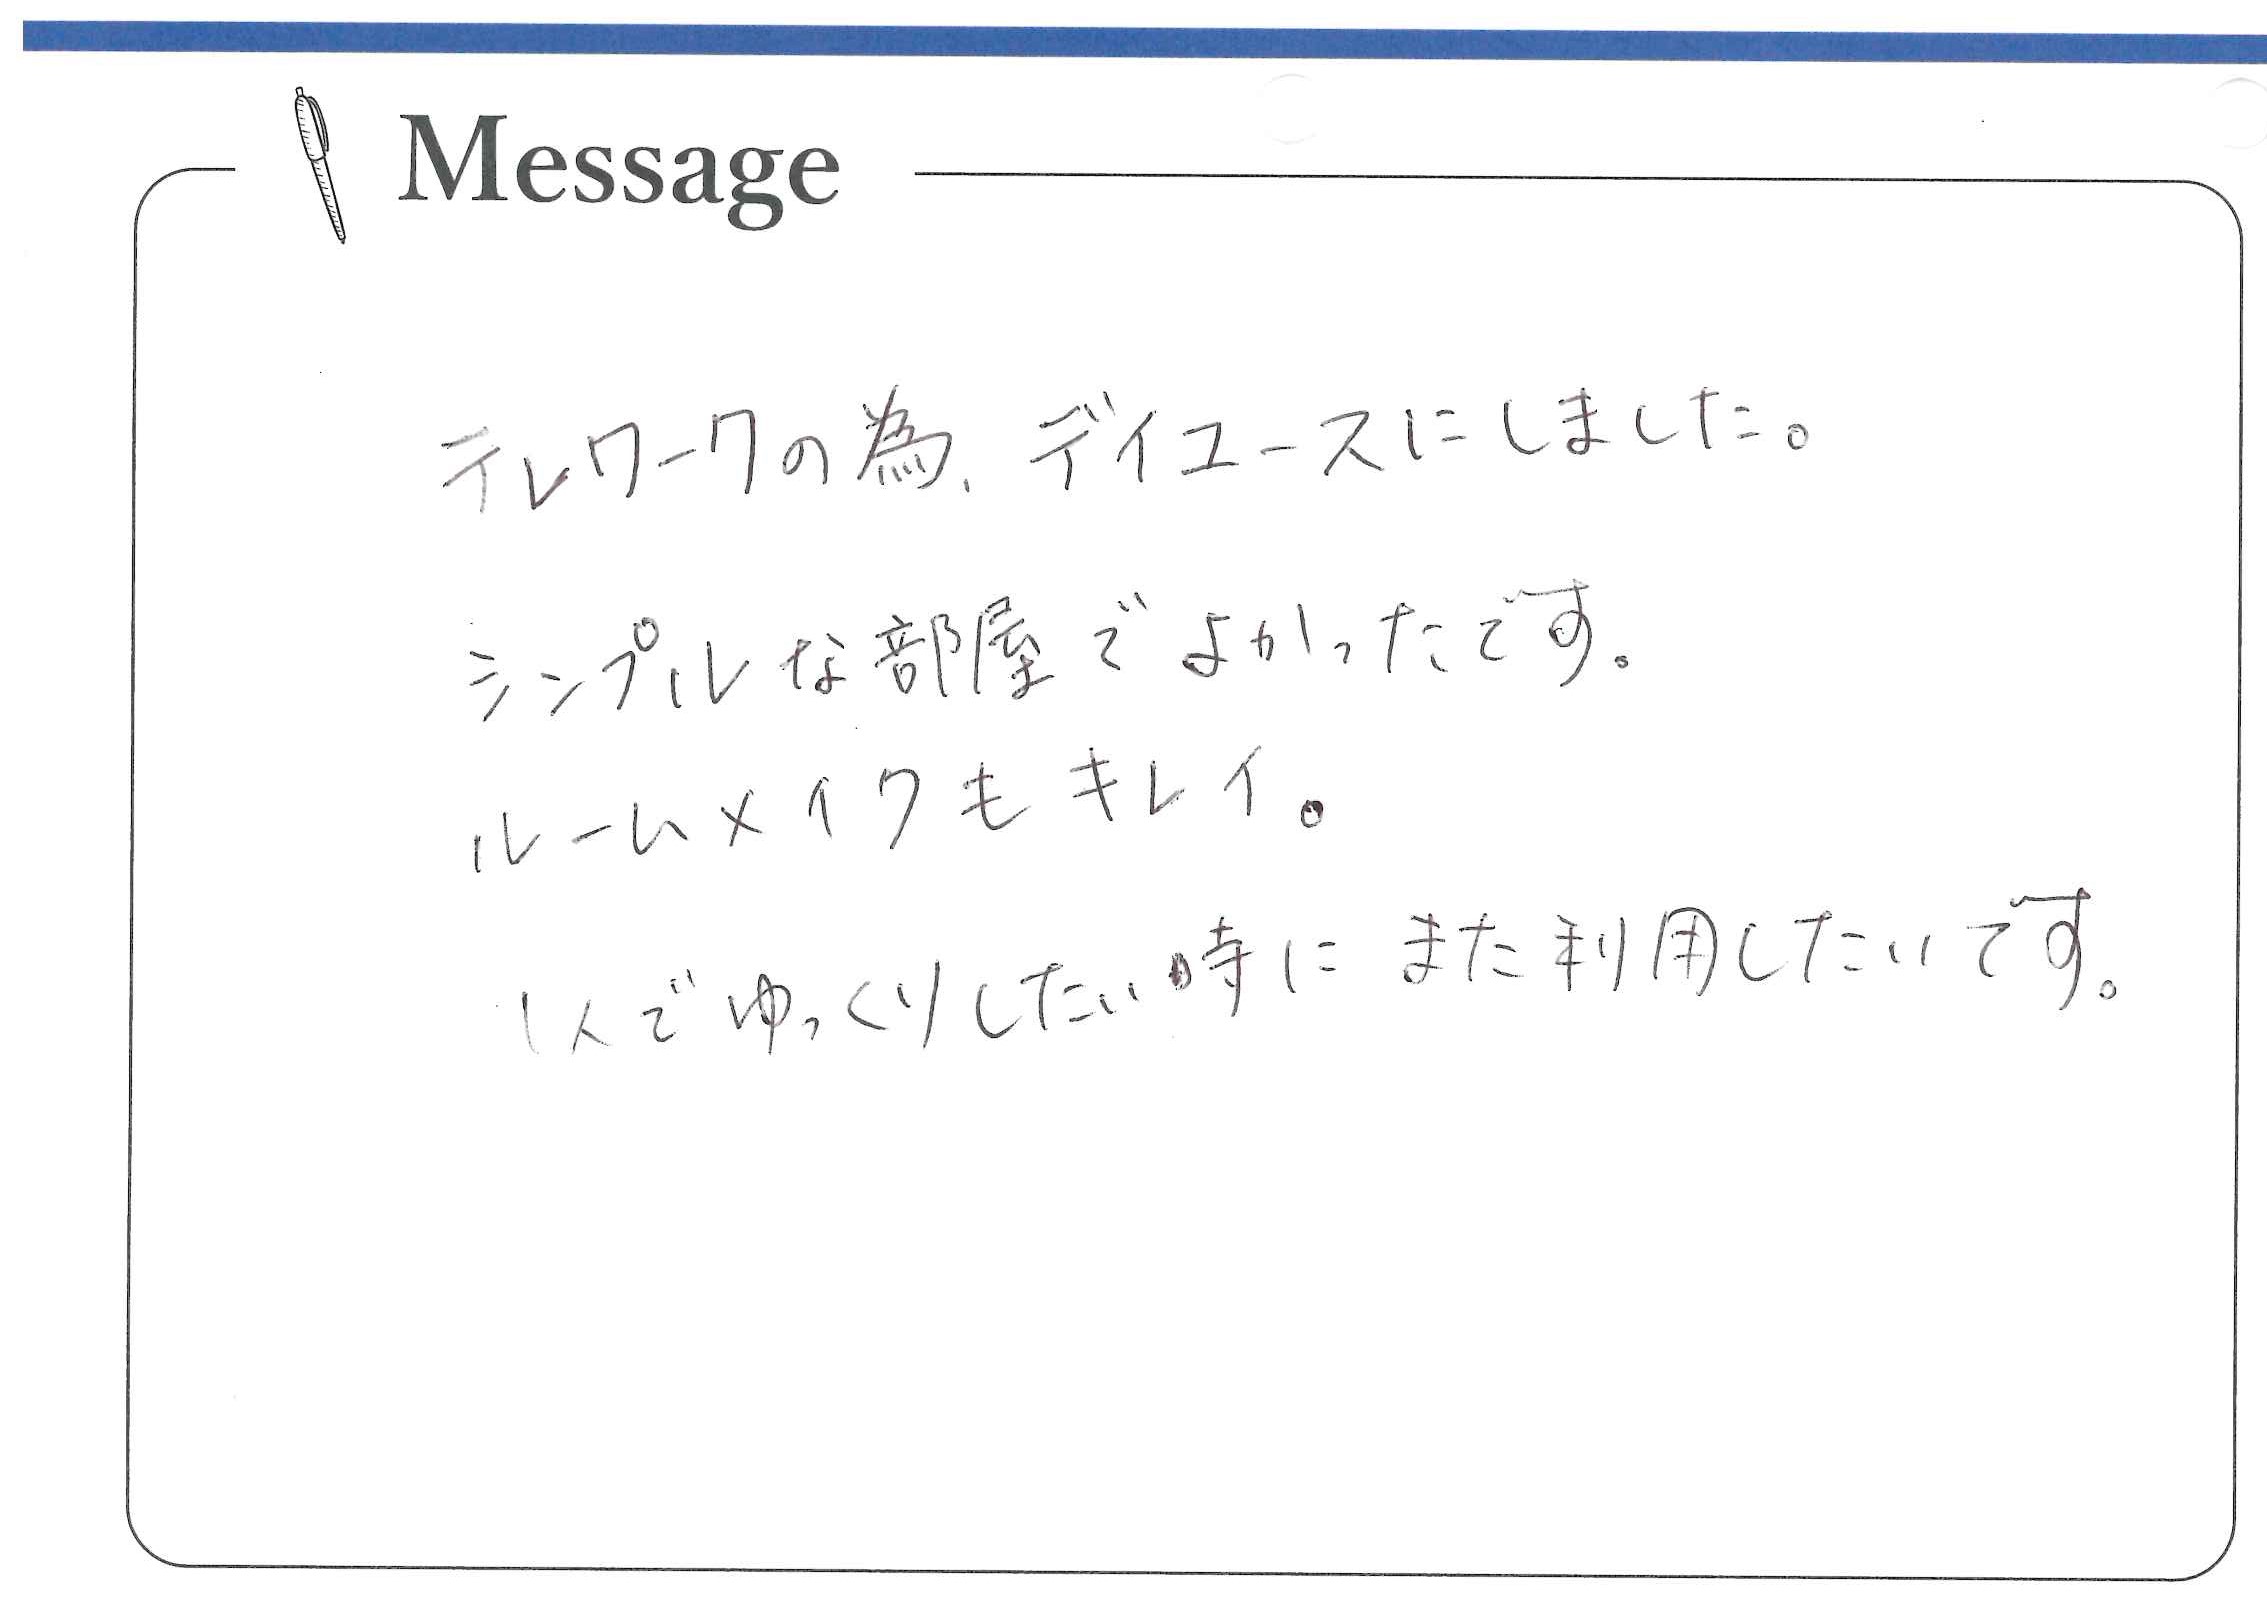 Message
テレワークの為、デイユースにしました。
シンプルな部屋でよかったです。
ルームメイクもキレイ。
1人でゆっくりしたい時にまた利用したいです。